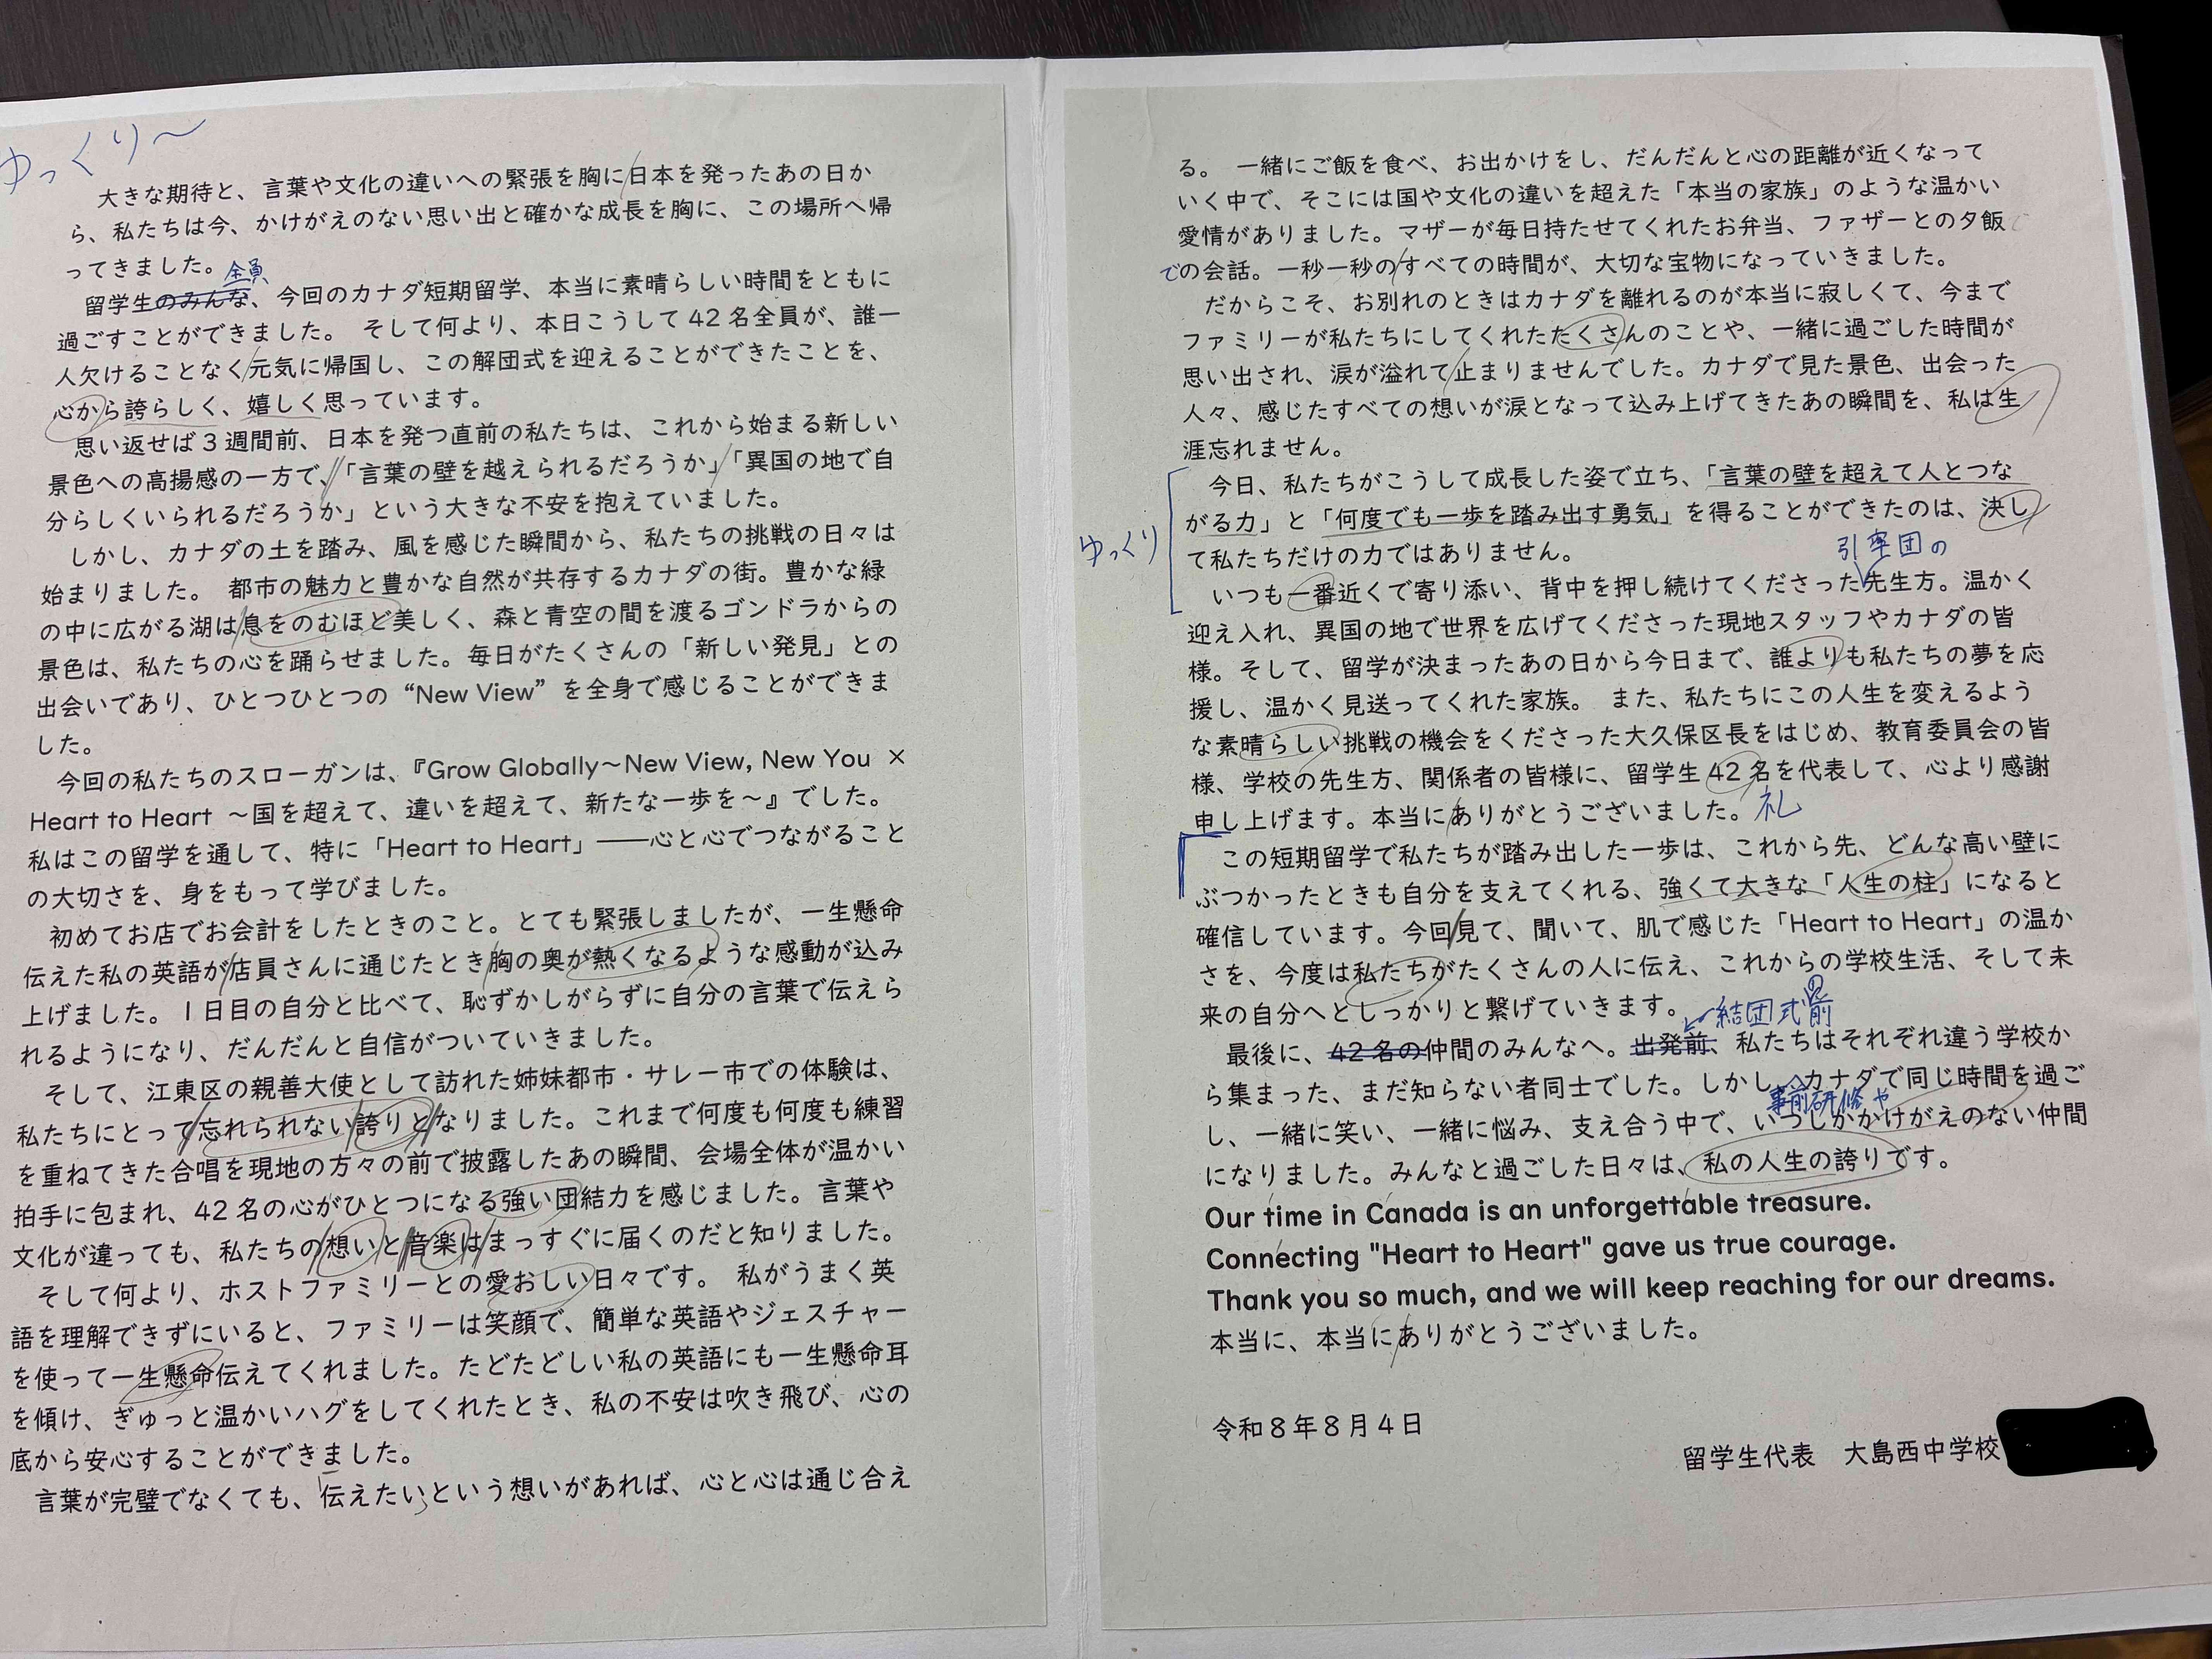 ゆっくり〜
大きな期待と、言葉や文化の違いへの緊張を胸に日本を発ったあの日か
ら、私たちは今、かけがえのない思い出と確かな成長を胸に、この場所へ帰
ってきました。
全員
留学生のみんな、今回のカナダ短期留学、本当に素晴らしい時間をともに
過ごすことができました。 そして何より、本日こうして42名全員が、誰一
人欠けることなく元気に帰国し、この解団式を迎えることができたことを、
心から誇らしく、嬉しく思っています。
思い返せば3週間前、日本を発つ直前の私たちは、これから始まる新しい
景色への高揚感の一方で、「言葉の壁を越えられるだろうか」「異国の地で自
分らしくいられるだろうか」という大きな不安を抱えていました。
しかし、カナダの土を踏み、風を感じた瞬間から、私たちの挑戦の日々は
始まりました。 都市の魅力と豊かな自然が共存するカナダの街。豊かな緑
の中に広がる湖は息をのむほど美しく、森と青空の間を渡るゴンドラからの
景色は、私たちの心を踊らせました。毎日がたくさんの「新しい発見」との
出会いであり、ひとつひとつの “New View” を全身で感じることができま
した。
今回の私たちのスローガンは、『Grow Globally～New View, New You ×
Heart to Heart ～国を超えて、違いを超えて、新たな一歩を～』でした。
私はこの留学を通して、特に「Heart to Heart」――心と心でつながること
の大切さを、身をもって学びました。
初めてお店でお会計をしたときのこと。とても緊張しましたが、一生懸命
伝えた私の英語が店員さんに通じたとき胸の奥が熱くなるような感動が込み
上げました。1日目の自分と比べて、恥ずかしがらずに自分の言葉で伝えら
れるようになり、だんだんと自信がついていきました。
そして、江東区の親善大使として訪れた姉妹都市・サレー市での体験は、
私たちにとって忘れられない誇りとなりました。これまで何度も何度も練習
を重ねてきた合唱を現地の方々の前で披露したあの瞬間、会場全体が温かい
拍手に包まれ、42名の心がひとつになる強い団結力を感じました。言葉や
文化が違っても、私たちの想いと音楽はまっすぐに届くのだと知りました。
そして何より、ホストファミリーとの愛おしい日々です。 私がうまく英
語を理解できずにいると、ファミリーは笑顔で、簡単な英語やジェスチャー
を使って一生懸命伝えてくれました。たどたどしい私の英語にも一生懸命耳
を傾け、ぎゅっと温かいハグをしてくれたとき、私の不安は吹き飛び、心の
底から安心することができました。
言葉が完璧でなくても、伝えたいという想いがあれば、心と心は通じ合え
る。 一緒にご飯を食べ、お出かけをし、だんだんと心の距離が近くなって
いく中で、そこには国や文化の違いを超えた「本当の家族」のような温かい
愛情がありました。マザーが毎日持たせてくれたお弁当、ファザーとの夕飯
での会話。一秒一秒のすべての時間が、大切な宝物になっていきました。
だからこそ、お別れのときはカナダを離れるのが本当に寂しくて、今まで
ファミリーが私たちにしてくれたたくさんのことや、一緒に過ごした時間が
思い出され、涙が溢れて止まりませんでした。カナダで見た景色、出会った
人々、感じたすべての想いが涙となって込み上げてきたあの瞬間を、私は生
涯忘れません。
今日、私たちがこうして成長した姿で立ち、「言葉の壁を超えて人とつな
がる力」と「何度でも一歩を踏み出す勇気」を得ることができたのは、決し
ゆっくり
て私たちだけの力ではありません。
引率団の
いつも一番近くで寄り添い、背中を押し続けてくださった先生方。温かく
迎え入れ、異国の地で世界を広げてくださった現地スタッフやカナダの皆
様。そして、留学が決まったあの日から今日まで、誰よりも私たちの夢を応
援し、温かく見送ってくれた家族。 また、私たちにこの人生を変えるよう
な素晴らしい挑戦の機会をくださった大久保区長をはじめ、教育委員会の皆
様、学校の先生方、関係者の皆様に、留学生42名を代表して、心より感謝
申し上げます。本当にありがとうございました。 礼
この短期留学で私たちが踏み出した一歩は、これから先、どんな高い壁に
ぶつかったときも自分を支えてくれる、強くて大きな「人生の柱」になると
確信しています。今回見て、聞いて、肌で感じた「Heart to Heart」の温か
さを、今度は私たちがたくさんの人に伝え、これからの学校生活、そして未
来の自分へとしっかりと繋げていきます。
結団式の前
最後に、42名の仲間のみんなへ。出発前、私たちはそれぞれ違う学校か
ら集まった、まだ知らない者同士でした。しかし、カナダで同じ時間を過ご
事前研修や
し、一緒に笑い、一緒に悩み、支え合う中で、いつしかかけがえのない仲間
になりました。みんなと過ごした日々は、私の人生の誇りです。
Our time in Canada is an unforgettable treasure.
Connecting "Heart to Heart" gave us true courage.
Thank you so much, and we will keep reaching for our dreams.
本当に、本当にありがとうございました。
令和8年8月4日
留学生代表 大島西中学校